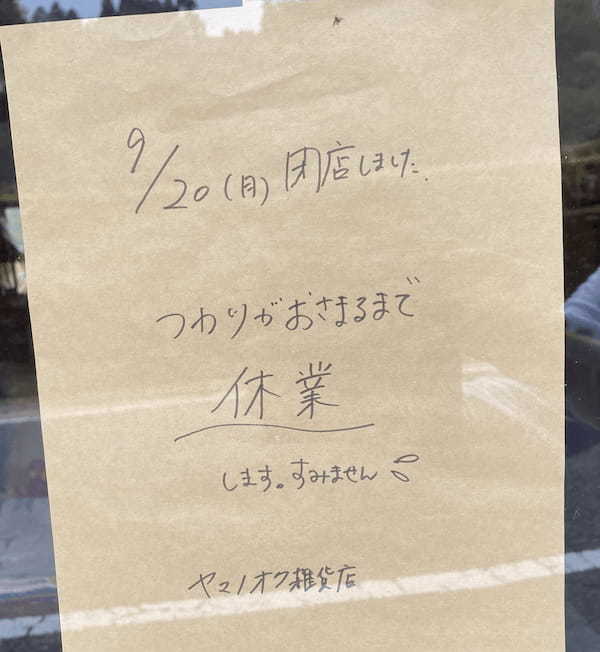 9/20(月)閉店しました.
つわりがおさまるまで
休業
します。すみません
ヤマノオク雑貨店